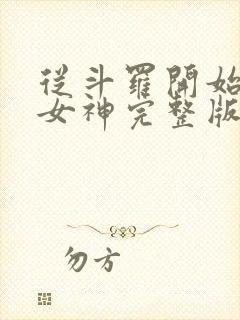 從斗羅開始
女神完整版
勿方